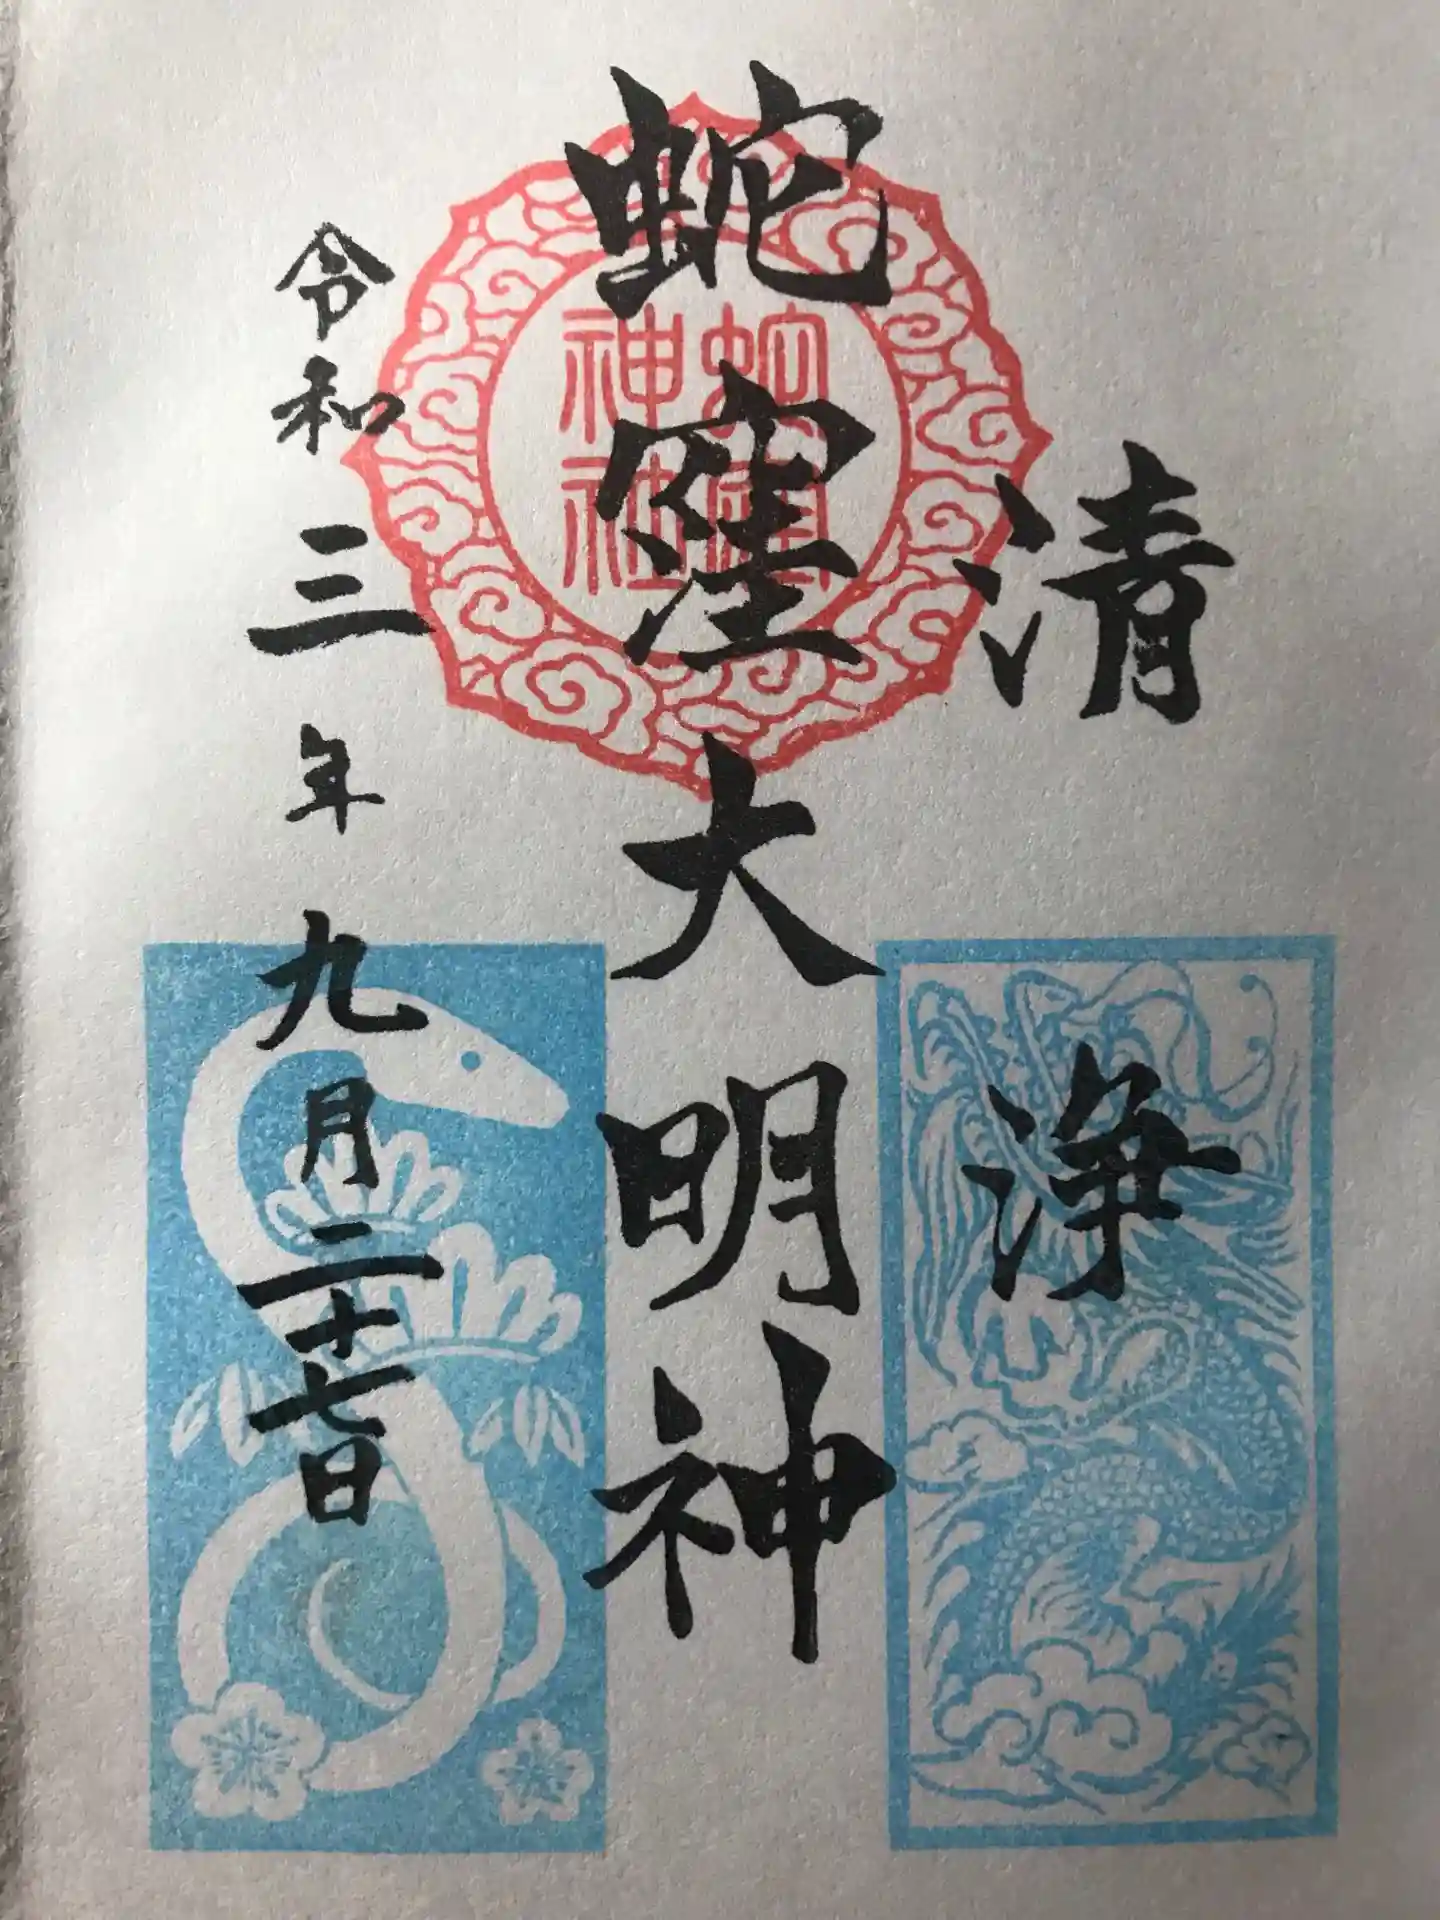 清浄
蛇窪大明神
蛇窪
神社
令和三年九月二十七日